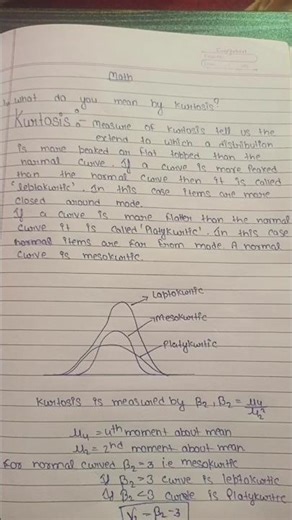 Math
what do you mean by Kurtosis?
Kurtosis:- Measure of kurtosis tell us the
extend to which a distribution
is more peaked or flat topped than the
normal curve. If a curve is more Peaked
than the normal curve then it is called
'leptokurtic'. In this case items are more
closed around mode.
If a curve is more flatter than the normal
curve it is called 'Platykurtic'. In this case
normal items are far from mode. A normal
curve is mesokurtic.
Leptokurtic
Mesokurtic
Platykurtic
Kurtosis is measured by β₂, β₂ = μ₄/μ₂²
μ₄ = 4th moment about mean
μ₂ = 2nd moment about mean
For normal curved β₂=3 i.e mesokurtic
If β₂>3 curve is leptokurtic
If β₂<3 curve is Platykurtic
γ₂ = β₂-3